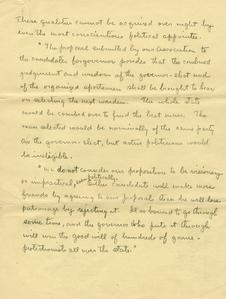 These qualities cannot be acquired over night by
even the most conscientious political appointee.
"The proposal submitted by our association to
the candidates for governor provides that the combined
judgement and wisdom of the governor-elect and
of the organized sportsmen shall be brought to bear
on selecting the next warden. The whole state
would be combed over to find the best man. The
man selected would be normally of the same party
as the governor-elect, but active politicians would
be ineligible.
"We do not consider our proposition to be visionary
or impractical, even politically. Either candidate will make more
friends by agreeing to our proposal than he will lose
patronage by rejecting it. It is bound to go through
some time, and the governor who puts it through
will win the good will of hundreds of game-
protectionists all over the state."